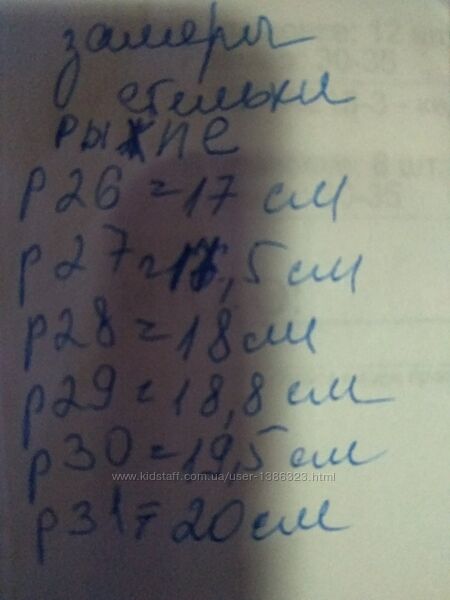 замеры
стельки
рыжие
р26=17 см
р27=17,5 см
р28=18 см
р29=18,8 см
р30=19,5 см
www.kidstaff.com.ua/user-1386323.html
р31=20 см